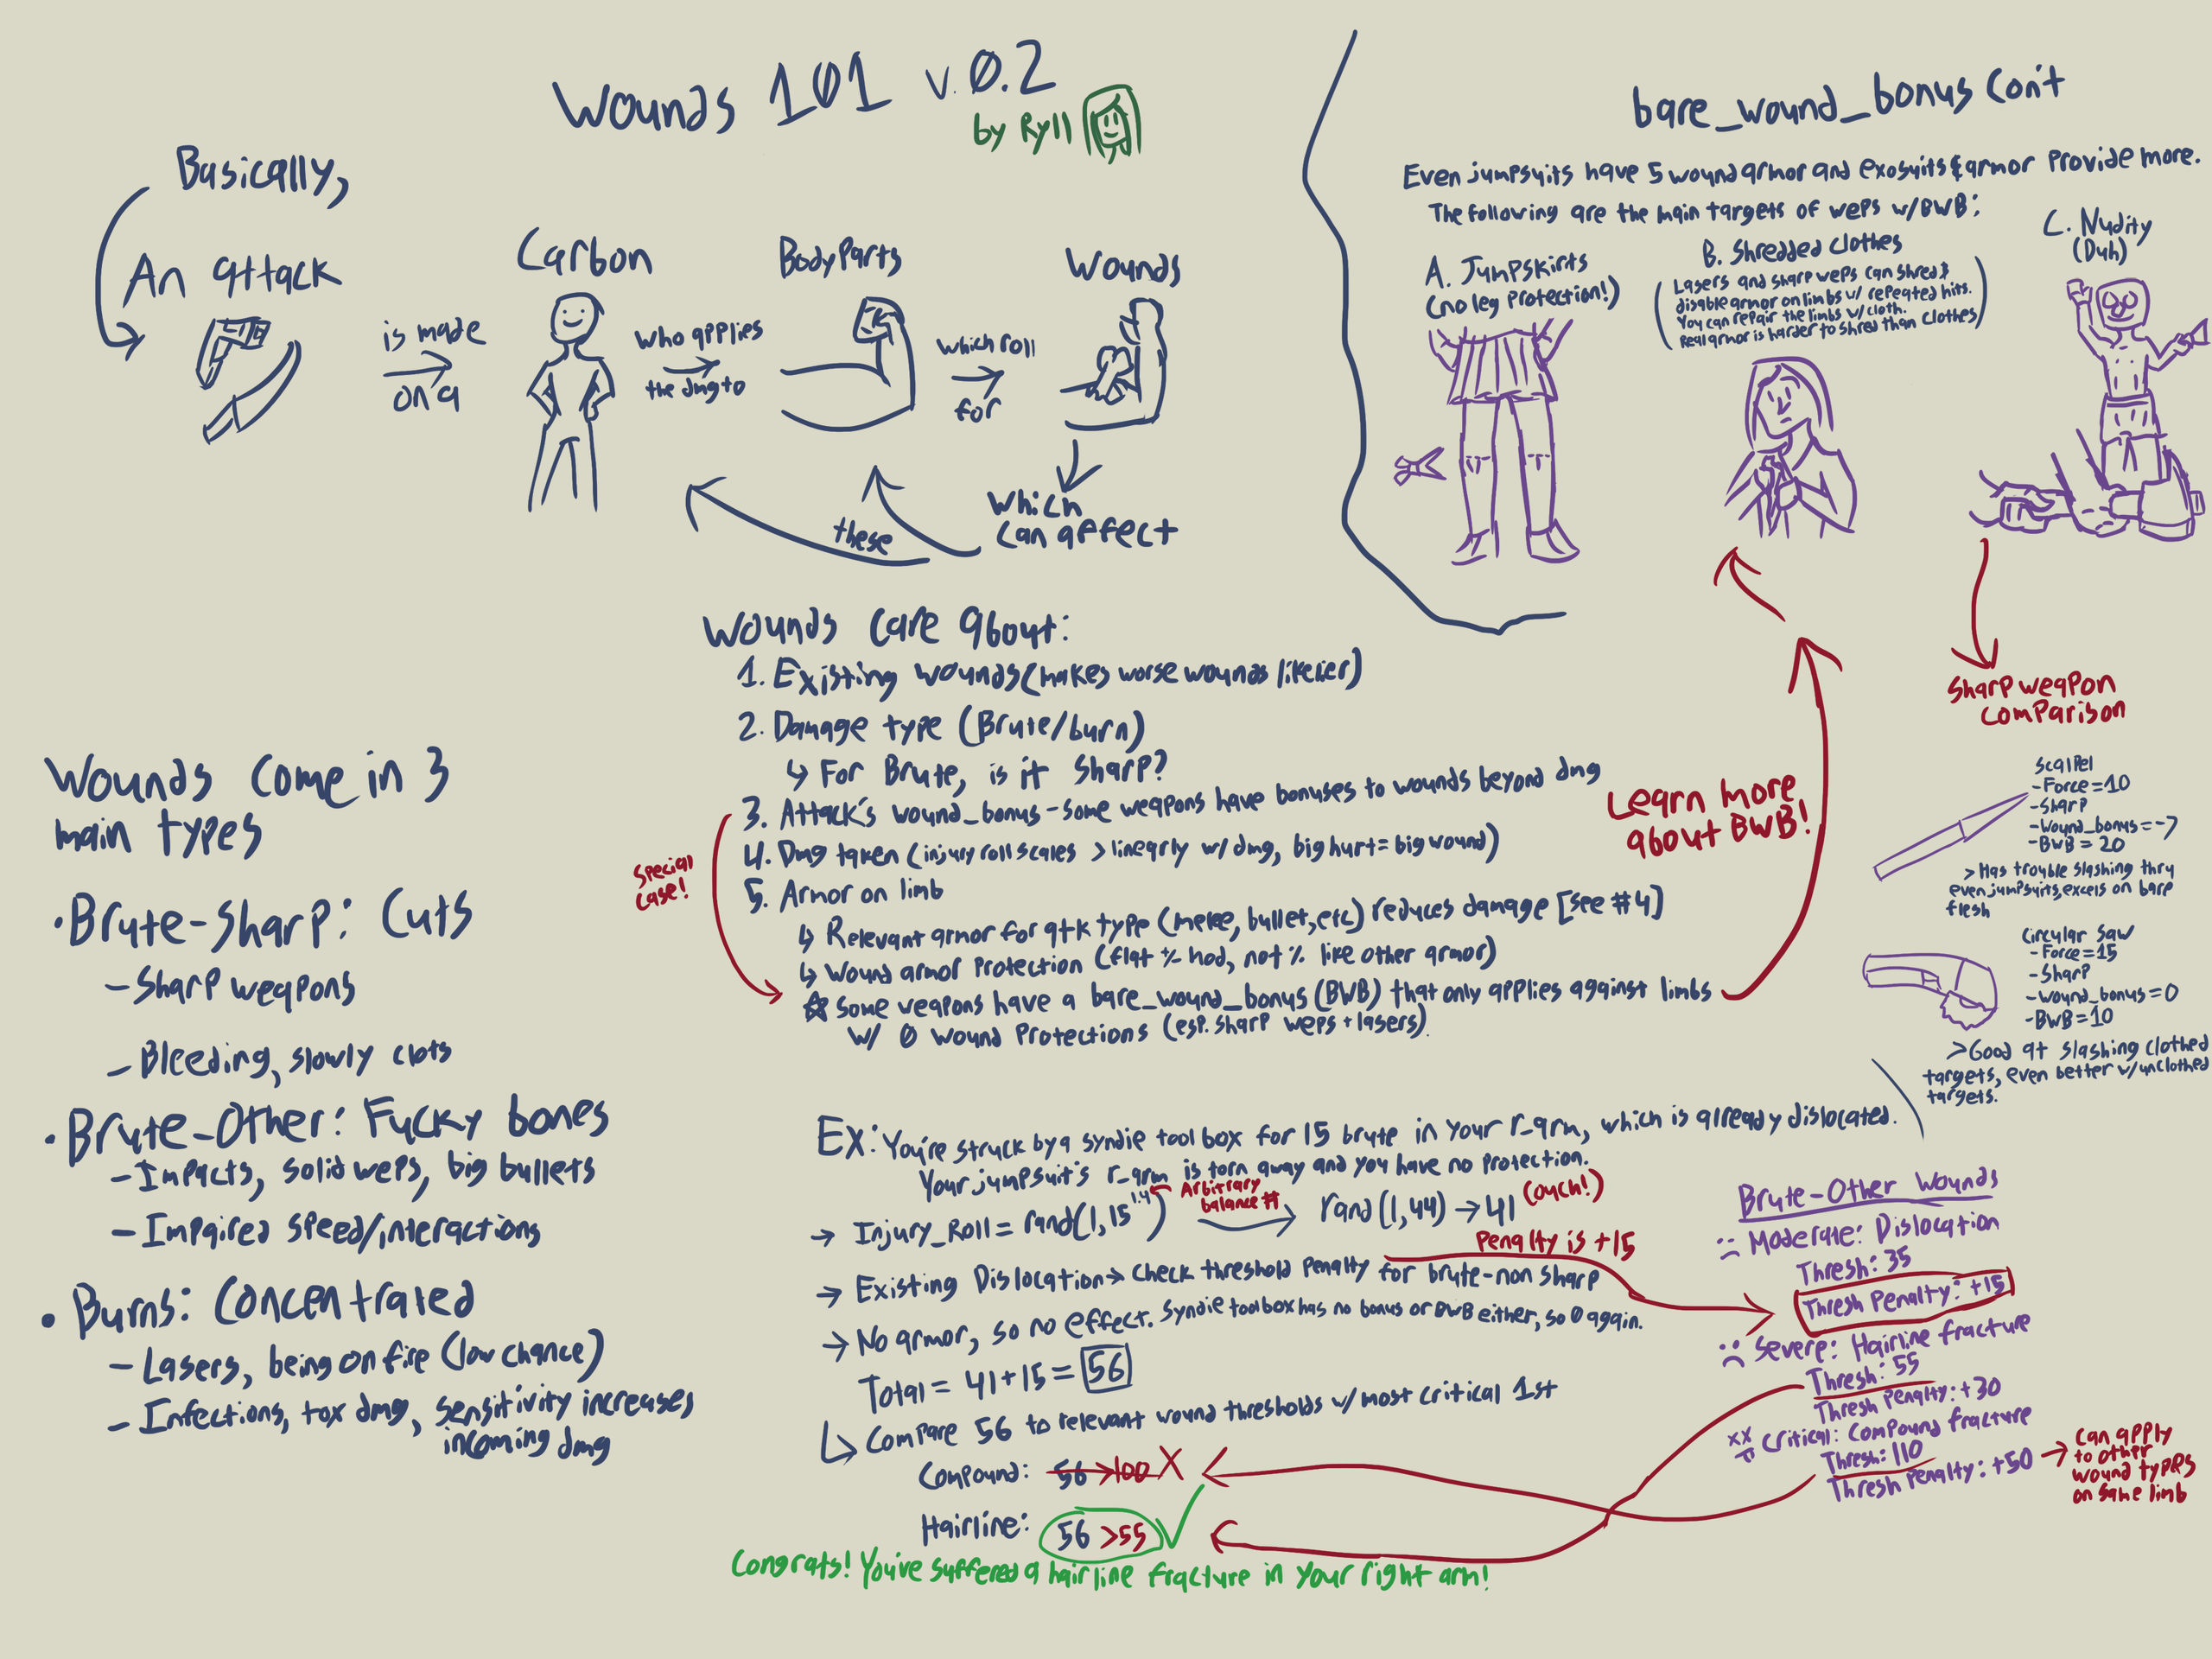 Wounds 101 v.0.2
by Ryll
Basically,
An attack
is made
on a
Carbon
who applies
the dmg to
BodyParts
which roll
for
Wounds
which
can affect
these
Wounds care about:
1. Existing wounds (makes worse wounds likelier)
2. Damage type (Brute/burn)
↳ For Brute, is it sharp?
3. Attack's wound_bonus - some weapons have bonuses to wounds beyond dmg
4. Dmg taken (injury roll scales > linearly w/ dmg, big hurt = big wound)
5. Armor on limb
↳ Relevant armor for atk type (melee, bullet, etc) reduces damage [see #4]
↳ Wound armor protection (flat +/- mod, not % like other armor)
☆ some weapons have a bare_wound_bonus (BWB) that only applies against limbs
w/ 0 wound protections (esp. sharp weps + lasers).
special
case!
Learn more
about BWB!
Wounds come in 3
main types
• Brute-sharp: Cuts
- Sharp weapons
- Bleeding, slowly clots
• Brute-Other: Fucky bones
- Impacts, solid weps, big bullets
- Impaired speed/interactions
• Burns: Concentrated
- Lasers, being on fire (low chance)
- Infections, tox dmg, sensitivity increases
incoming dmg
Ex: You're struck by a syndie toolbox for 15 brute in your r_arm, which is already dislocated.
Your jumpsuit's r_arm is torn away and you have no protection.
→ Injury_Roll = rand(1, 15^1.4) → rand(1,44) → 41 (ouch!)
Arbitrary
balance #
Penalty is +15
→ Existing Dislocation → check threshold penalty for brute-non sharp
→ No armor, so no effect. Syndie toolbox has no bonus or BWB either, so 0 again.
Total = 41+15 = 56
↳ Compare 56 to relevant wound thresholds w/ most critical 1st
Compound: 56 > 100 X
Hairline: 56 > 55 ✓
Congrats! You've suffered a hairline fracture in your right arm!
bare_wound_bonus con't
Even jumpsuits have 5 wound armor and exosuits & armor provide more.
The following are the main targets of weps w/ BWB:
A. Jumpskirts
(no leg protection!)
B. Shredded clothes
(Lasers and sharp weps can shred &
disable armor on limbs w/ repeated hits.
You can repair the limbs w/ cloth.
Real armor is harder to shred than clothes)
C. Nudity
(Duh)
Sharp weapon
comparison
Scalpel
- Force = 10
- Sharp
- Wound_bonus = -7
- BWB = 20
> Has trouble slashing thru
even jumpsuits, excels on bare
flesh
Circular saw
- Force = 15
- Sharp
- Wound_bonus = 0
- BWB = 10
> Good at slashing clothed
targets, even better w/ unclothed
targets.
Brute-Other Wounds
Moderate: Dislocation
Thresh: 35
Thresh Penalty: +15
Severe: Hairline fracture
Thresh: 55
Thresh Penalty: +30
Critical: Compound fracture
Thresh: 110
Thresh Penalty: +50
→ Can apply
to other
wound types
on same limb